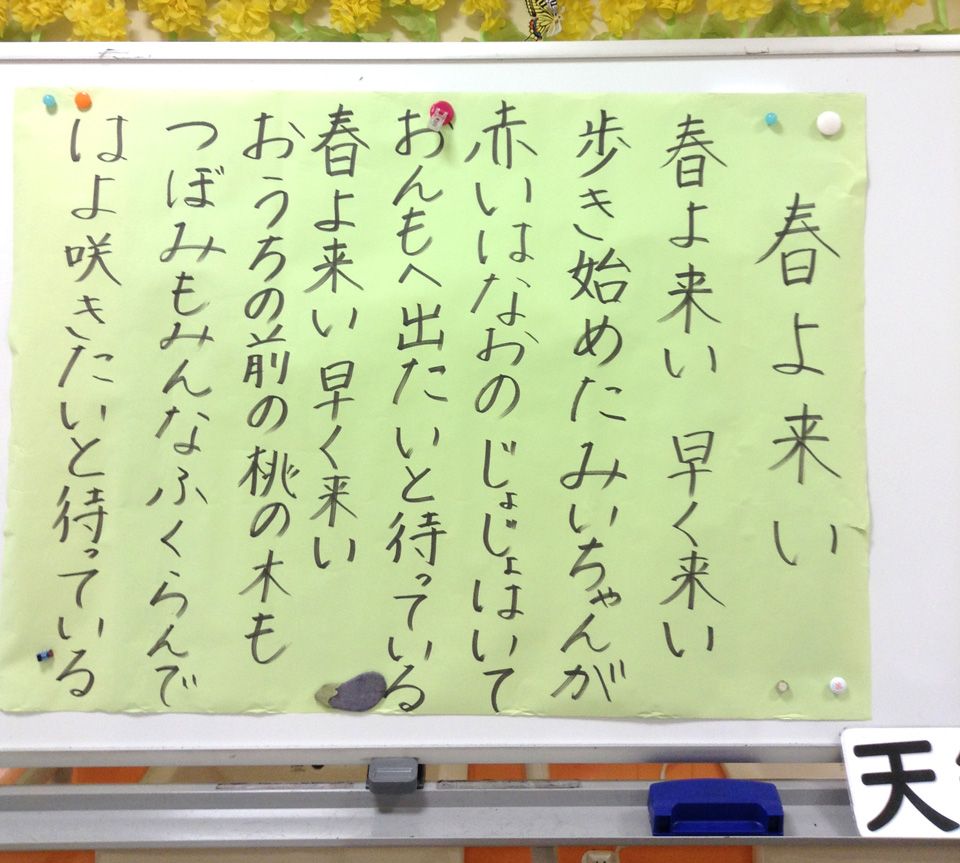 春よ来い
春よ来い 早く来い
歩き始めたみいちゃんが
赤いはなおのじょじょはいて
おんもへ出たいと待っている
春よ来い 早く来い
おうちの前の桃の木も
つぼみもみんなふくらんで
はよ咲きたいと待っている
天